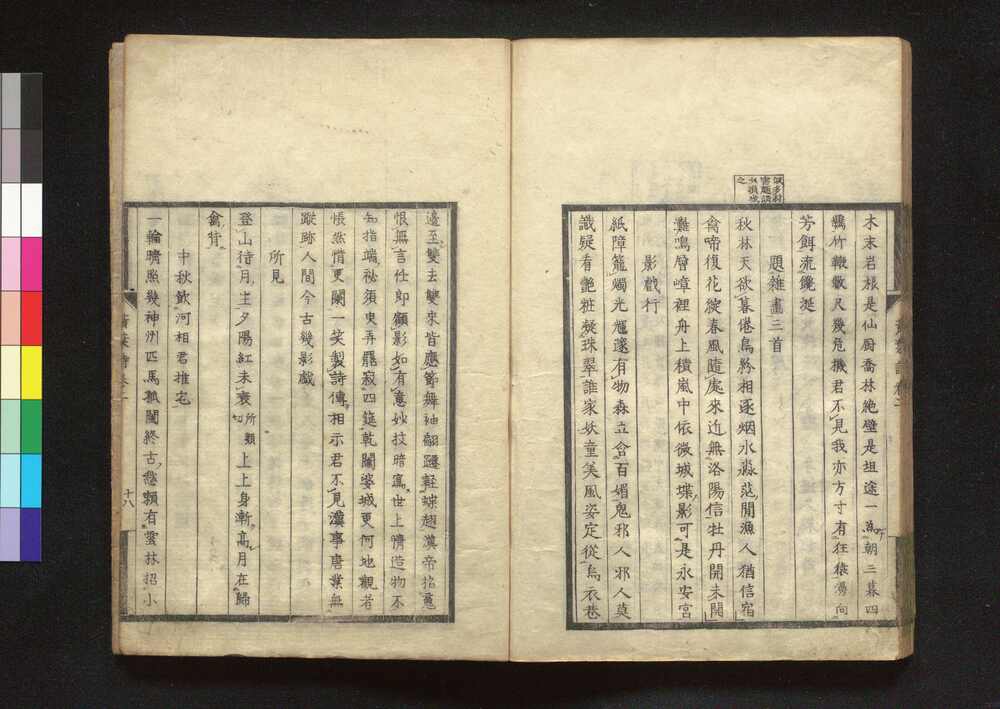 木末岩根是仙厨喬林絶壁是坦途一為朝三暮四
竹轍數尺幾危機君不見我亦方寸有狂猿傍向
芳餌流饞涎
題雜畫三首
秋林天欲暮倦鳥矜相逐烟水淼茫閒漁人猶信宿
禽啼復花淀春風隨處來近無洛陽信牡丹開未開
灘鳴層嶂裡舟上積嵐中依微城堞影可是永安宮
影戲行
紙障籠燭光耀邃有物森立含百媚鬼邪人邪人莫
識疑看艶粧凝珠翠誰家妖童美風姿定從烏衣巷
邊至雙去雙來皆應節舞袖翩躚輕蝶趙漢帝招魂
恨無言任郎顧影如有意妙技暗寫世上情造物不
知指端祕須臾弄罷寂四筵乾闥婆城更何地觀者
悵然情更闌一笑製詩傳相示君不見漢事唐業無
蹤跡人間今古幾影戲
所見
登山待月生夕陽紅未衰所類切上上身漸高月在歸
禽背
中秋飲河相君推宅
一輪晴照幾神洲匹馬孤闈終古愁賴有蛩林招小
十八